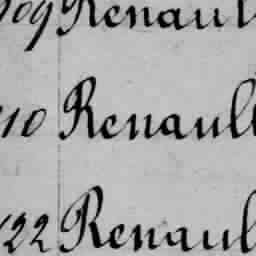 109 Renault
110 Renault
122 Renault